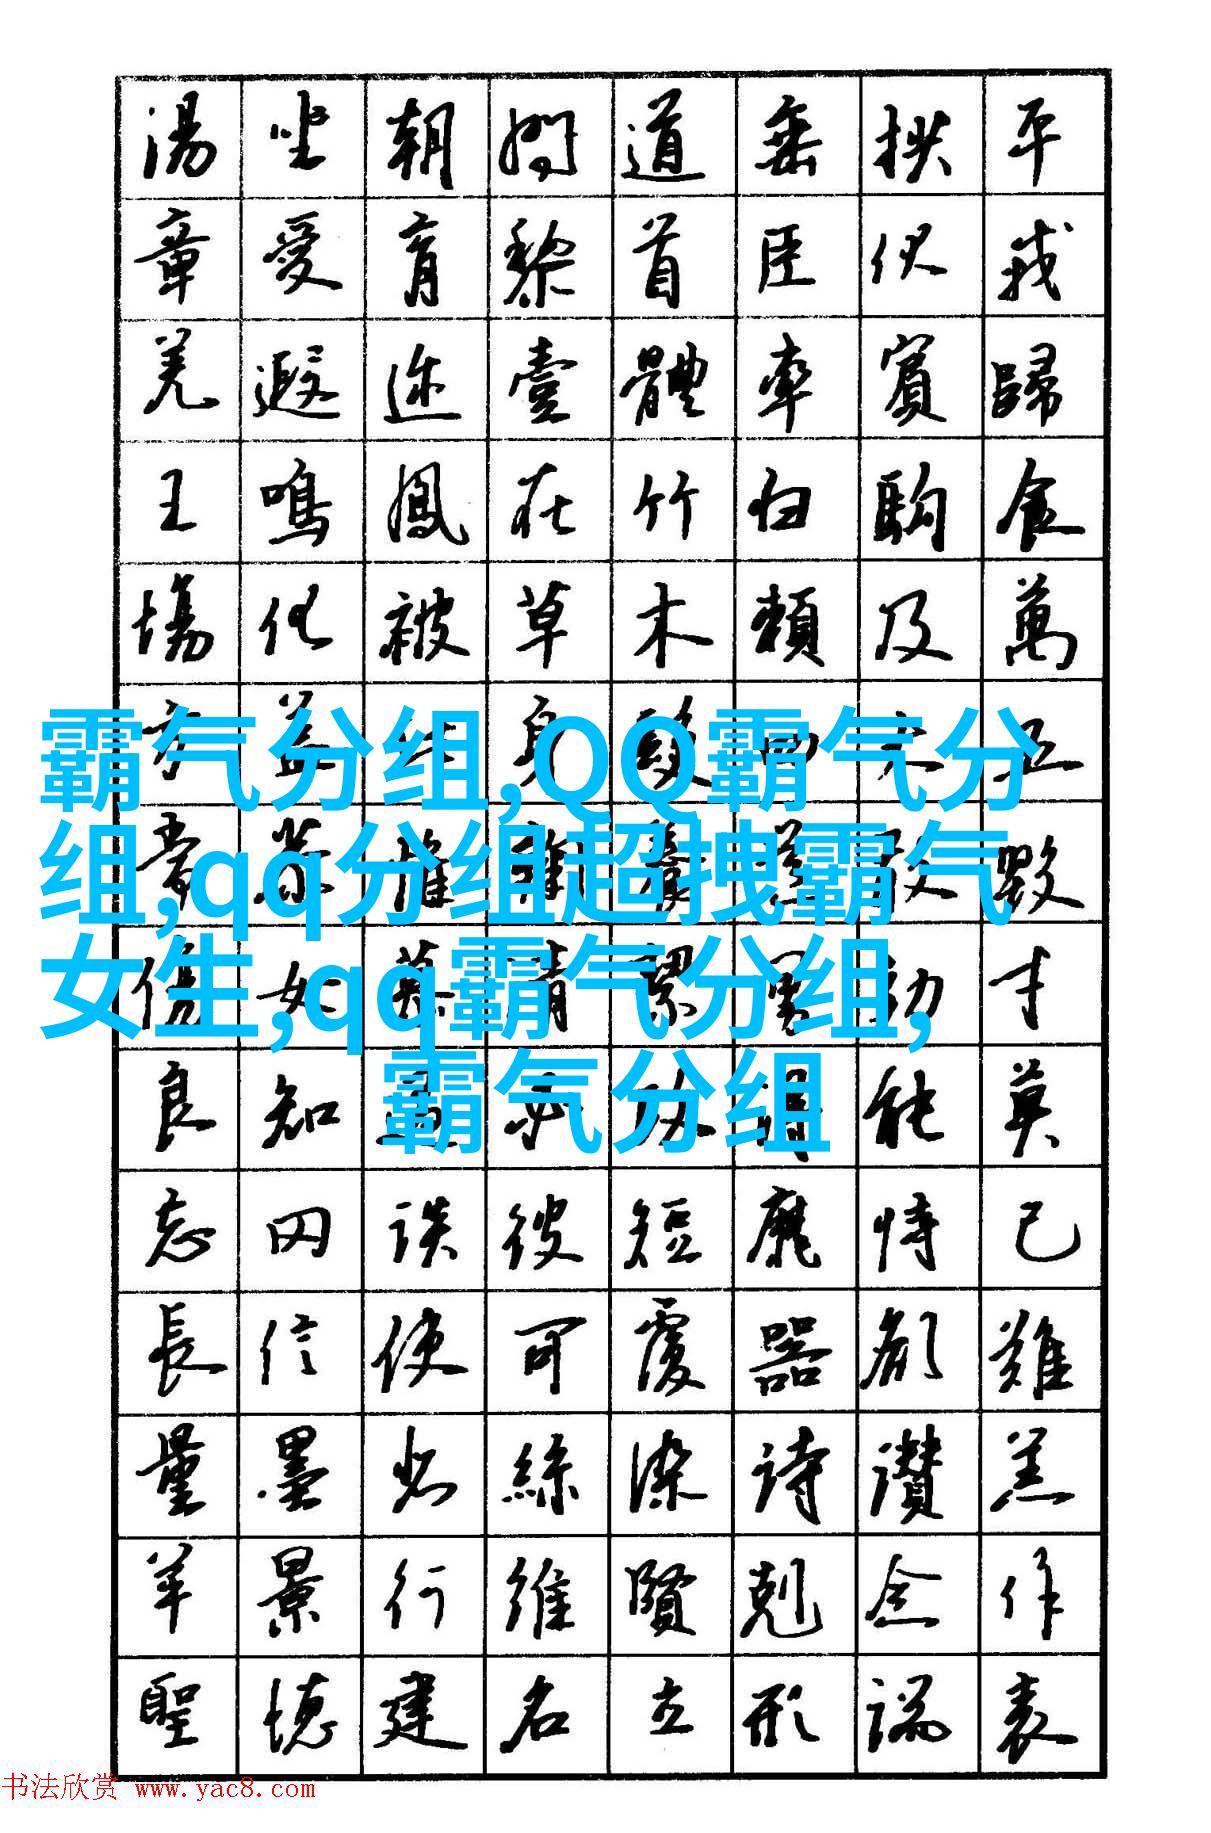 湯坐朝問道垂拱平
章愛育黎首臣伏戎
羌遐迩壹體率賓歸
王鳴鳳在竹白駒食
場化被草木賴及萬
霸气分组,QQ霸气分
组,qq分组超拽霸气
女生,qq霸气分组,
霸气分组
良知過必改得能莫
忘罔談彼短靡恃己
長信使可覆器欲難
量墨悲絲染詩讃羔
羊景行維賢剋念作
聖德建名立形端表
书法欣赏 www.yac8.com